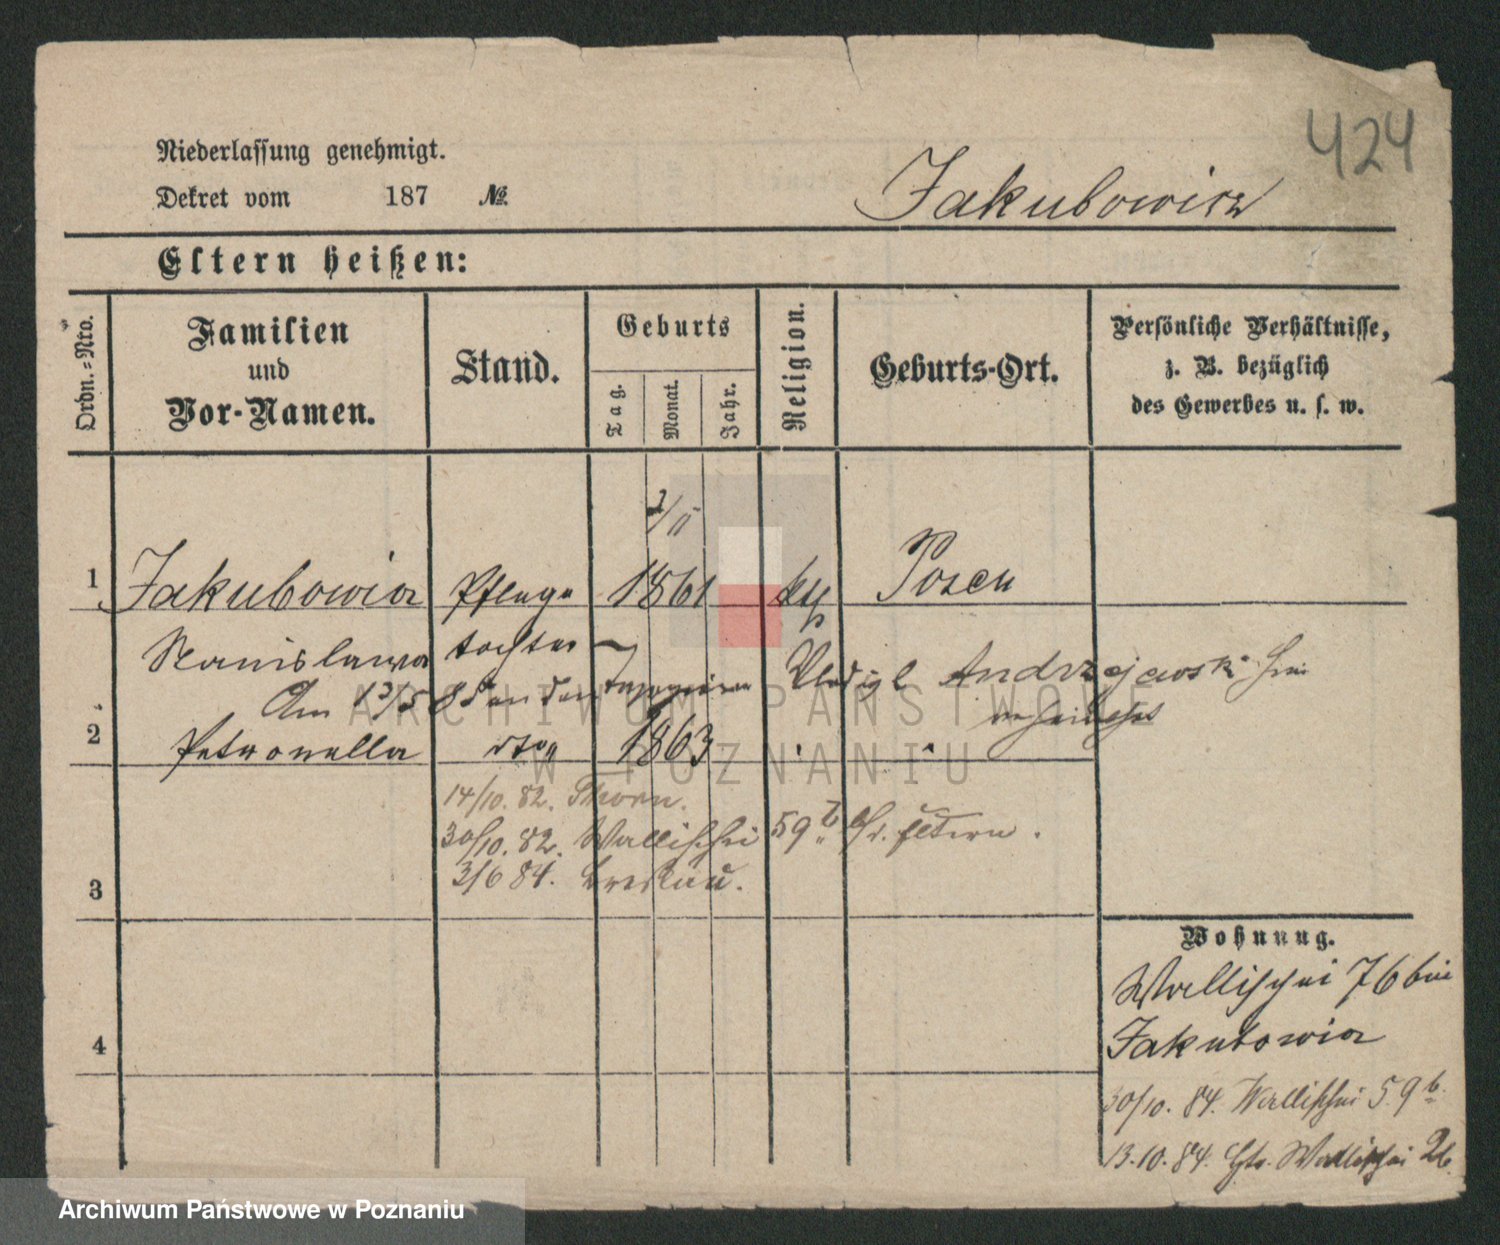 424
Niederlassung genehmigt.
Dekret vom 187 №
Jakubowicz
Eltern heißen:
Ordn.-Nro.
Familien
und
Vor-Namen.
Stand.
Geburts
Tag.
Monat.
Jahr.
Religion.
Geburts-Ort.
Persönliche Verhältnisse,
z. B. bezüglich
des Gewerbes u. s. w.
1 Jakubowicz Pflege 1861 Posen
Stanislawa tochter
Am Andrzejewski
2 Petronella dto 1863
14/10. 82. Thorn.
30/10. 82. Wallischei 59 b. Eltern.
3/6 84. Breslau.
3
4
Wohnung.
Wallischei 76 bei
Jakubowicz
30/10. 84. Wallischei 59 b.
13.10.84. Wallischei
ARCHIWUM PAŃSTWOWE
W POZNANIU
Archiwum Państwowe w Poznaniu